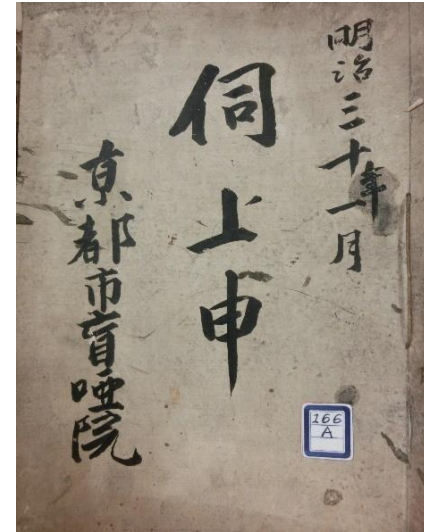 明治三十年一月
伺上申
京都市盲唖院
166
A